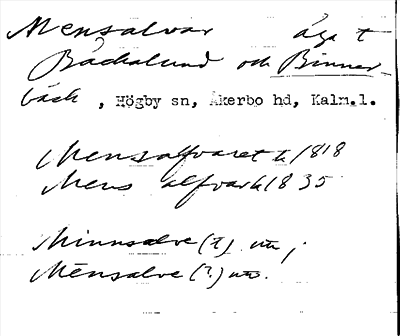 Mensalvar äga t
Bäckalund och Binner-
bäck, Högby sn, Åkerbo hd, Kalm.l.
Mensalfvaret k 1818
Mens alfvar k 1835
Minnsalve (?) utt;
Mensalve (?) utt.